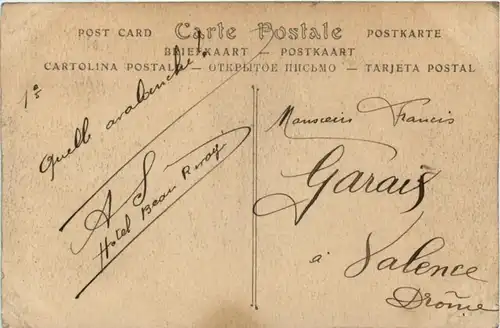 POST CARD Carte Postale POSTKARTE
BRIEFKAART — POSTKAART
CARTOLINA POSTALE — ОТКРЫТОЕ ПИСЬМО — TARJETA POSTAL
Quelle avalanche!
A S
Hotel Beau Rivage
Monsieur Francis
Garais
à Valence
Drôme